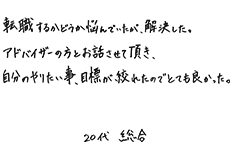 転職するかどうか悩んでいたが、解決した。
アドバイザーの方とお話させて頂き、
自分のやりたい事、目標が絞れたのでとても良かった。
20代 総合